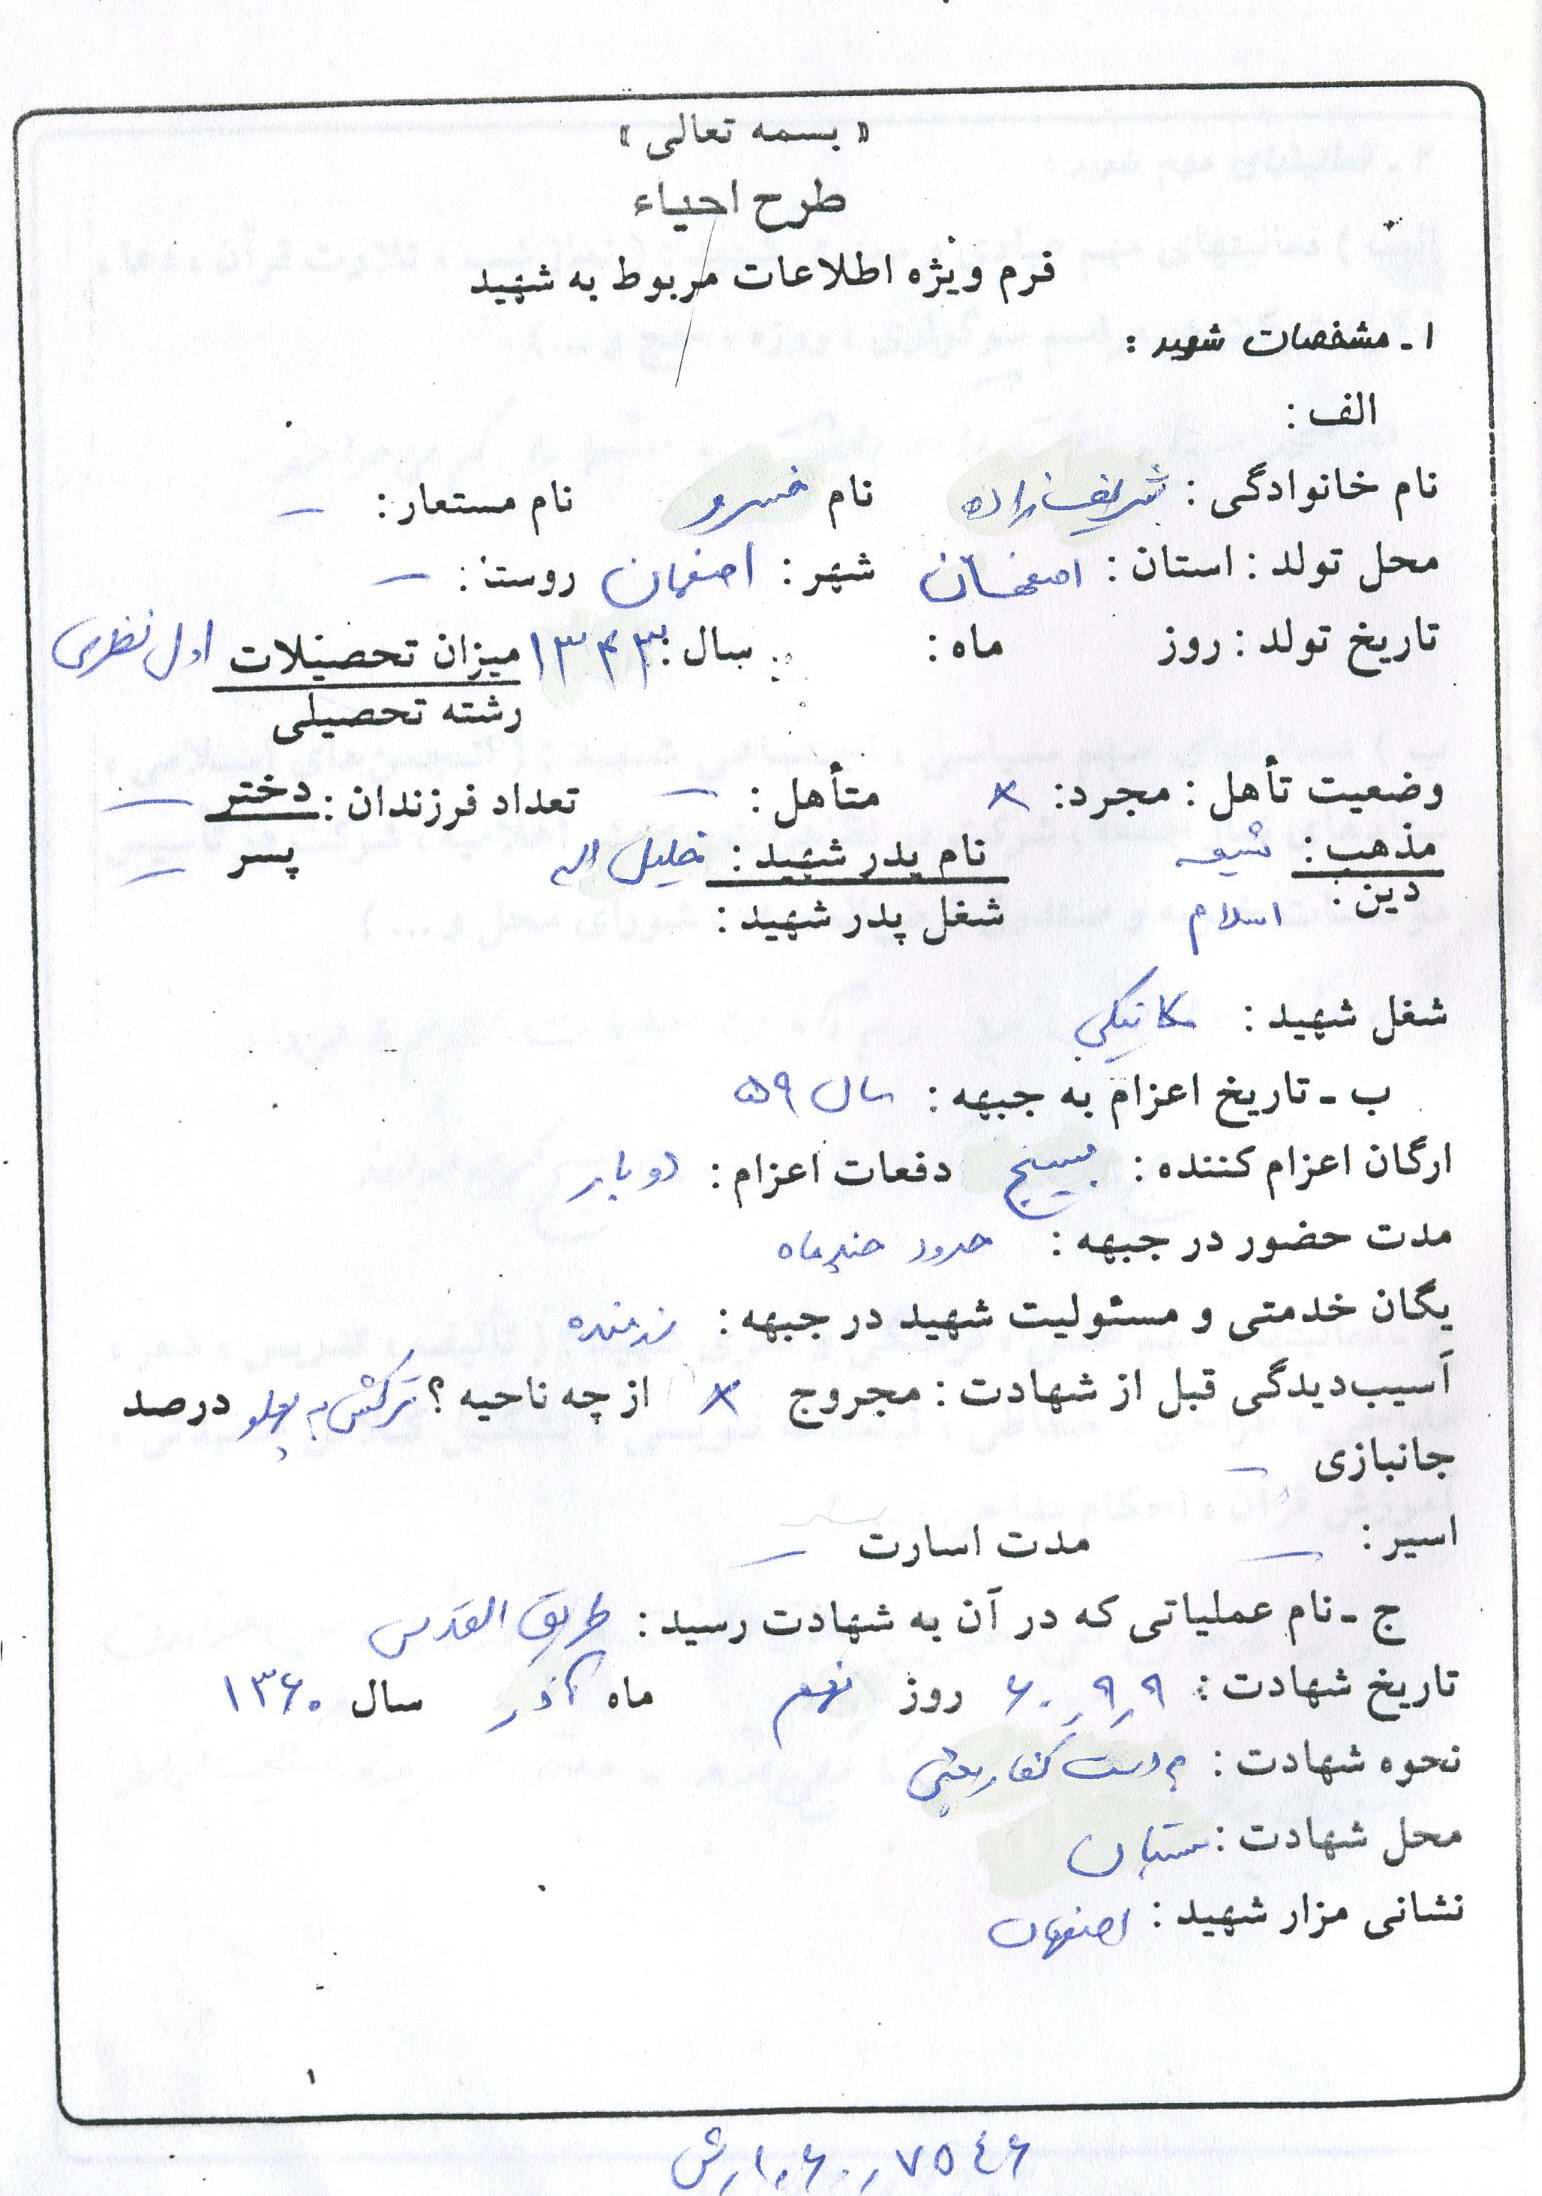 « بسمه تعالی »
طرح احیاء
فرم ویژه اطلاعات مربوط به شهید
۱ـ مشخصات شهید :
الف :
نام خانوادگی : شریف زاده نام خسرو نام مستعار: –
محل تولد : استان : اصفهان شهر : اصفهان روستا : –
تاریخ تولد : روز ماه : سال : ۱۳۴۳ میزان تحصیلات اول نظری
رشته تحصیلی
وضعیت تأهل : مجرد: × متأهل : – تعداد فرزندان : دختر –
مذهب : شیعه نام پدر شهید : خلیل اله پسر –
دین : اسلام شغل پدر شهید :
شغل شهید : مکانیکی
ب ـ تاریخ اعزام به جبهه : سال ۵۹
ارگان اعزام کننده : بسیج دفعات اعزام : دو بار
مدت حضور در جبهه : حدود چند ماه
یگان خدمتی و مسئولیت شهید در جبهه : رزمنده
آسیب‌دیدگی قبل از شهادت : مجروح × از چه ناحیه ؟ ترکش به پهلو درصد
جانبازی –
اسیر : – مدت اسارت –
ج ـ نام عملیاتی که در آن به شهادت رسید : طریق القدس
تاریخ شهادت : ۶۰٫۹٫۹ روز نهم ماه آذر سال ۱۳۶۰
نحوه شهادت : به دست کفار بعثی
محل شهادت : بستان
نشانی مزار شهید : اصفهان
۱